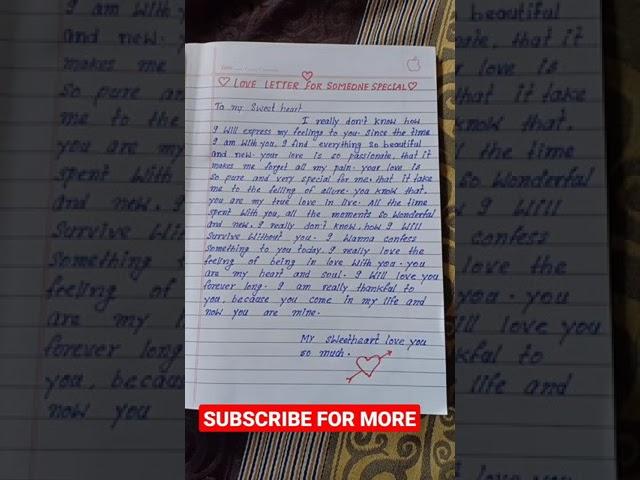 LOVE LETTER FOR SOMEONE SPECIAL
To my Sweet heart
I really don't know how
I will express my feelings to you. Since the time
I am with you, I find everything so beautiful
and new. your love is so passionate, that it
makes me forget all my pain. your love is
so pure and very special for me. that it take
me to the felling of allure. you know that,
you are my true love in live. All the time
spent with you, all the moments so wonderful
and new. I really don't know, how I will
survive without you. I wanna confess
something to you today. I really love the
feeling of being in love with you. you
are my heart and soul. I will love you
forever long. I am really thankful to
you, because you come in my life and
now you are mine.
My sweetheart love you
so much.
SUBSCRIBE FOR MORE